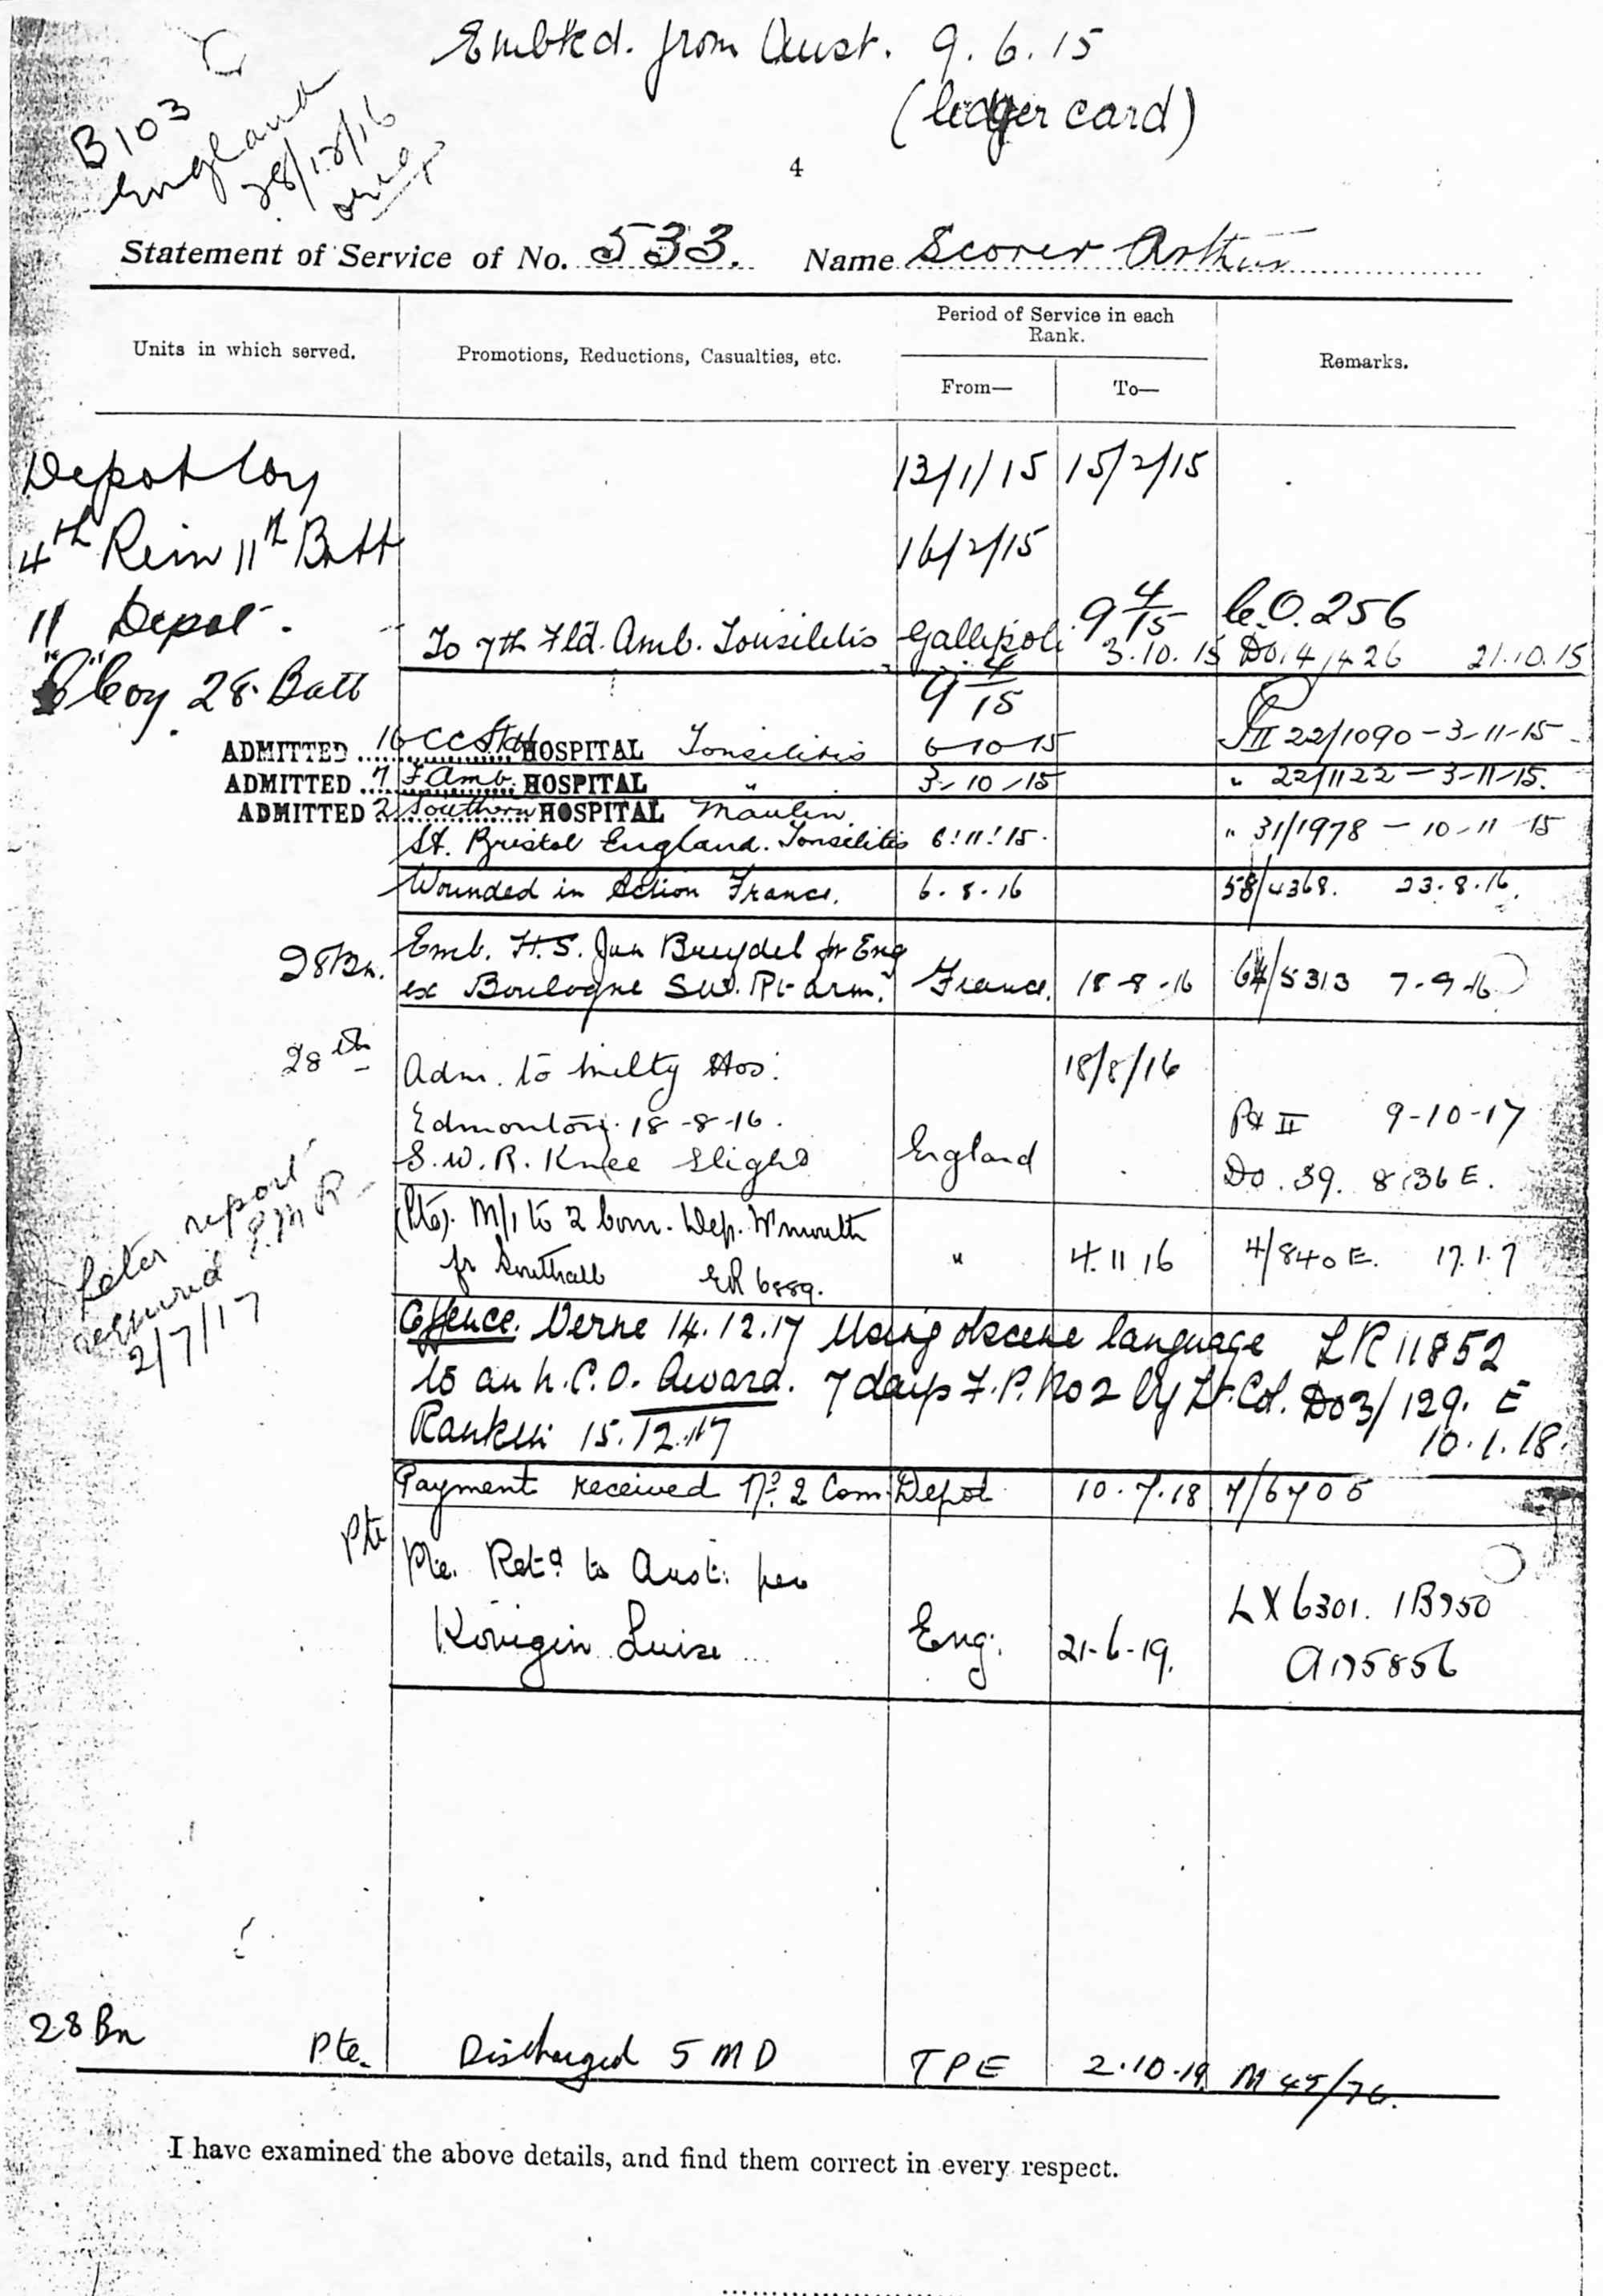 Embkd. from Aust. 9.6.15
(ledger card)
B103
England
28/12/16
4
Statement of Service of No. 533. Name Scorer Arthur
Units in which served. Promotions, Reductions, Casualties, etc. Period of Service in each Rank. Remarks.
From— To—
Depot Coy 13/1/15 15/2/15
4th Rein 11th Batt 16/2/15
11 Depot. 9 4/15 C.O. 256
To 7th Fld. Amb. Tonsilitis Gallipoli 3.10.15 Do. 14/426 21.10.15
Coy 28. Batt 9 4/15
ADMITTED 16 CC Stn HOSPITAL Tonsilitis 6-10-15 II 22/1090-3-11-15
ADMITTED 7 F. Amb. HOSPITAL " 3-10-15 " 22/1122-3-11-15.
ADMITTED 2 Southern HOSPITAL Maulin
St. Bristol England. Tonsilitis 6.11.15. " 31/1978-10-11-15
Wounded in Action France. 6.8.16 58/4368. 23.8.16.
28 Bn. Emb. H.S. Jan Breydel for Eng
ex Boulogne S.W. Rt arm. France. 18-8-16 64/5313 7-9-16
28th Adm. to Milty Hos. 18/8/16
Edmonton. 18-8-16. Pt II 9-10-17
S.W.R. Knee slight England Do. 39. 836 E.
Later report
required
2/7/17
(Pte). M/I to 2 Com. Dep. W'mouth
fr Southall ER 6889. " 4.11.16 4/840 E. 17.1.7
Offence. Verne 14.12.17 Using obscene language LR 11852
to an N.C.O. Award. 7 days F.P. No 2 by Lt. Col. Do 3/129. E
Rankin 15.12.17 10.1.18.
Payment received No. 2 Com. Depot 10.7.18 7/6705
Pte
Pte. Retd to Aust. per
Königin Luise Eng. 21-6-19. LX 6301. 1B750
A175856
28 Bn Pte. Discharged 5 MD TPE 2.10.19 M 45/76.
I have examined the above details, and find them correct in every respect.